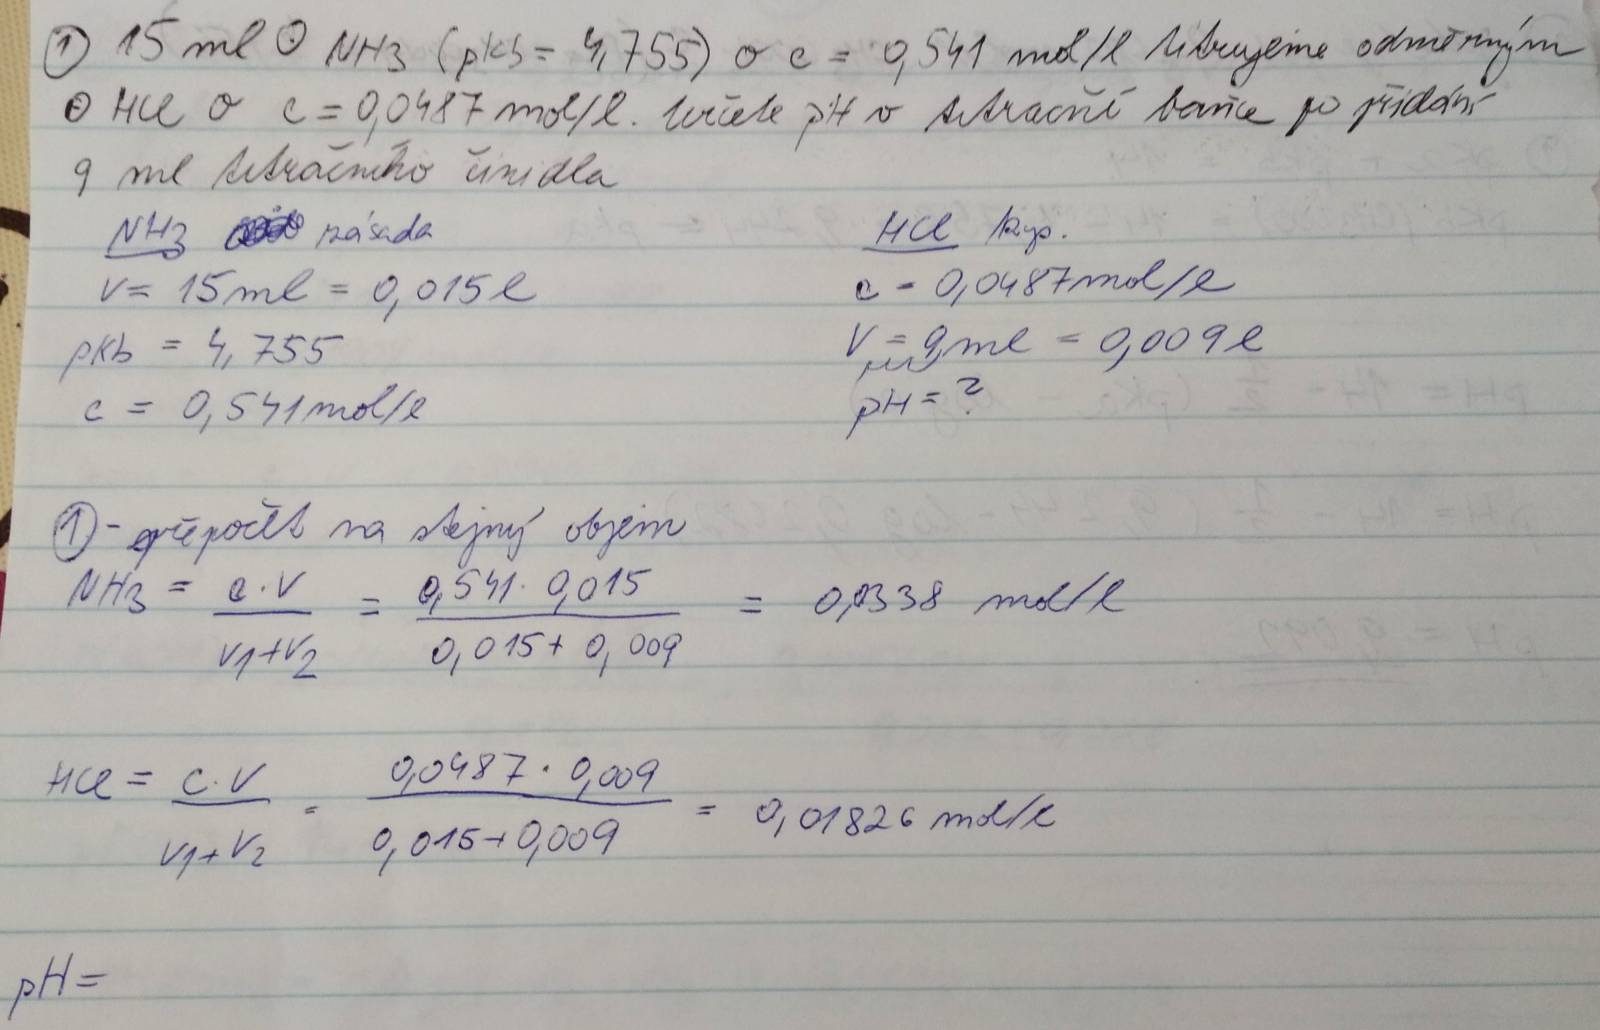 ① 15 ml ⊙ NH3 (pkb = 4,755) o c = 0,541 mol/l titrujeme odměrným
⊙ HCl o c = 0,0487 mol/l. Určete pH v titrační baňce po přidání
9 ml titračního činidla
NH3 zásada
HCl kys.
V = 15 ml = 0,015 l
c = 0,0487 mol/l
pkb = 4,755
V = 9 ml = 0,009 l
c = 0,541 mol/l
pH = ?
① - přepočet na stejný objem
NH3 = c·V / V1+V2 = 0,541 · 0,015 / 0,015 + 0,009 = 0,0338 mol/l
HCl = c·V / V1+V2 = 0,0487 · 0,009 / 0,015 + 0,009 = 0,01826 mol/l
pH =